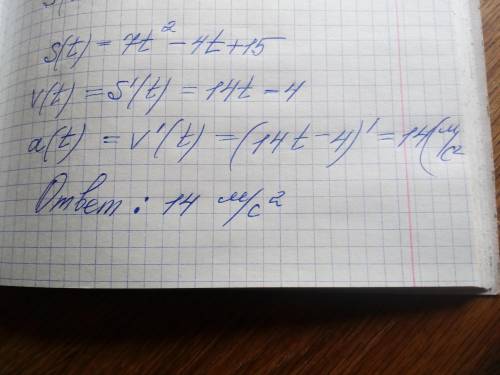 S(t) = 7t² - 4t + 15
v(t) = S'(t) = 14t - 4
a(t) = v'(t) = (14t - 4)' = 14 (м/с²
Ответ: 14 м/с²